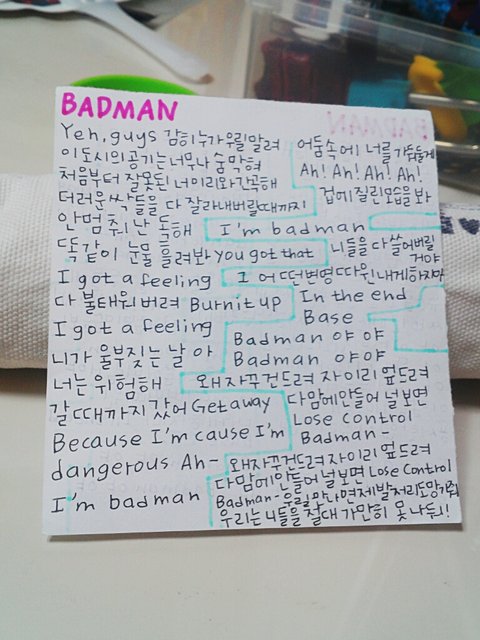 BADMAN
Yeh, guys 감히 누가 우릴 말려
이 도시의 공기는 너무나 숨막혀
처음부터 잘못된 너 이리와 각오해
더러운 싹들을 다 잘라내버릴때까지
안멈춰 난 독해
똑같이 눈물을 흘려봐 you got that
I got a feeling
다 불태워 버려 Burn it up
I got a feeling
니가 울부짖는 날 아
너는 위험해
갈때까지 갔어 Get away
Because I'm cause I'm
dangerous Ah-
I'm badman
어둠속에 너를 가둘게
Ah! Ah! Ah! Ah!
겁에 질린 모습을 봐
I'm badman
니들을 다 쓸어버릴
거야
I 어떤 변명 따윈 내게 하지마
In the end
Base
Badman 야 야
Badman 야 야
왜 자꾸 건드려 자 이리 엎드려
다 맘에 안들어 널 보면
Lose Control
Badman-
왜 자꾸 건드려 자 이리 엎드려
다 맘에 안들어 널 보면 Lose Control
Badman- 우릴 만나면 제발 저리 도망가줘
우리는 니들을 절대 가만히 못 나둬!